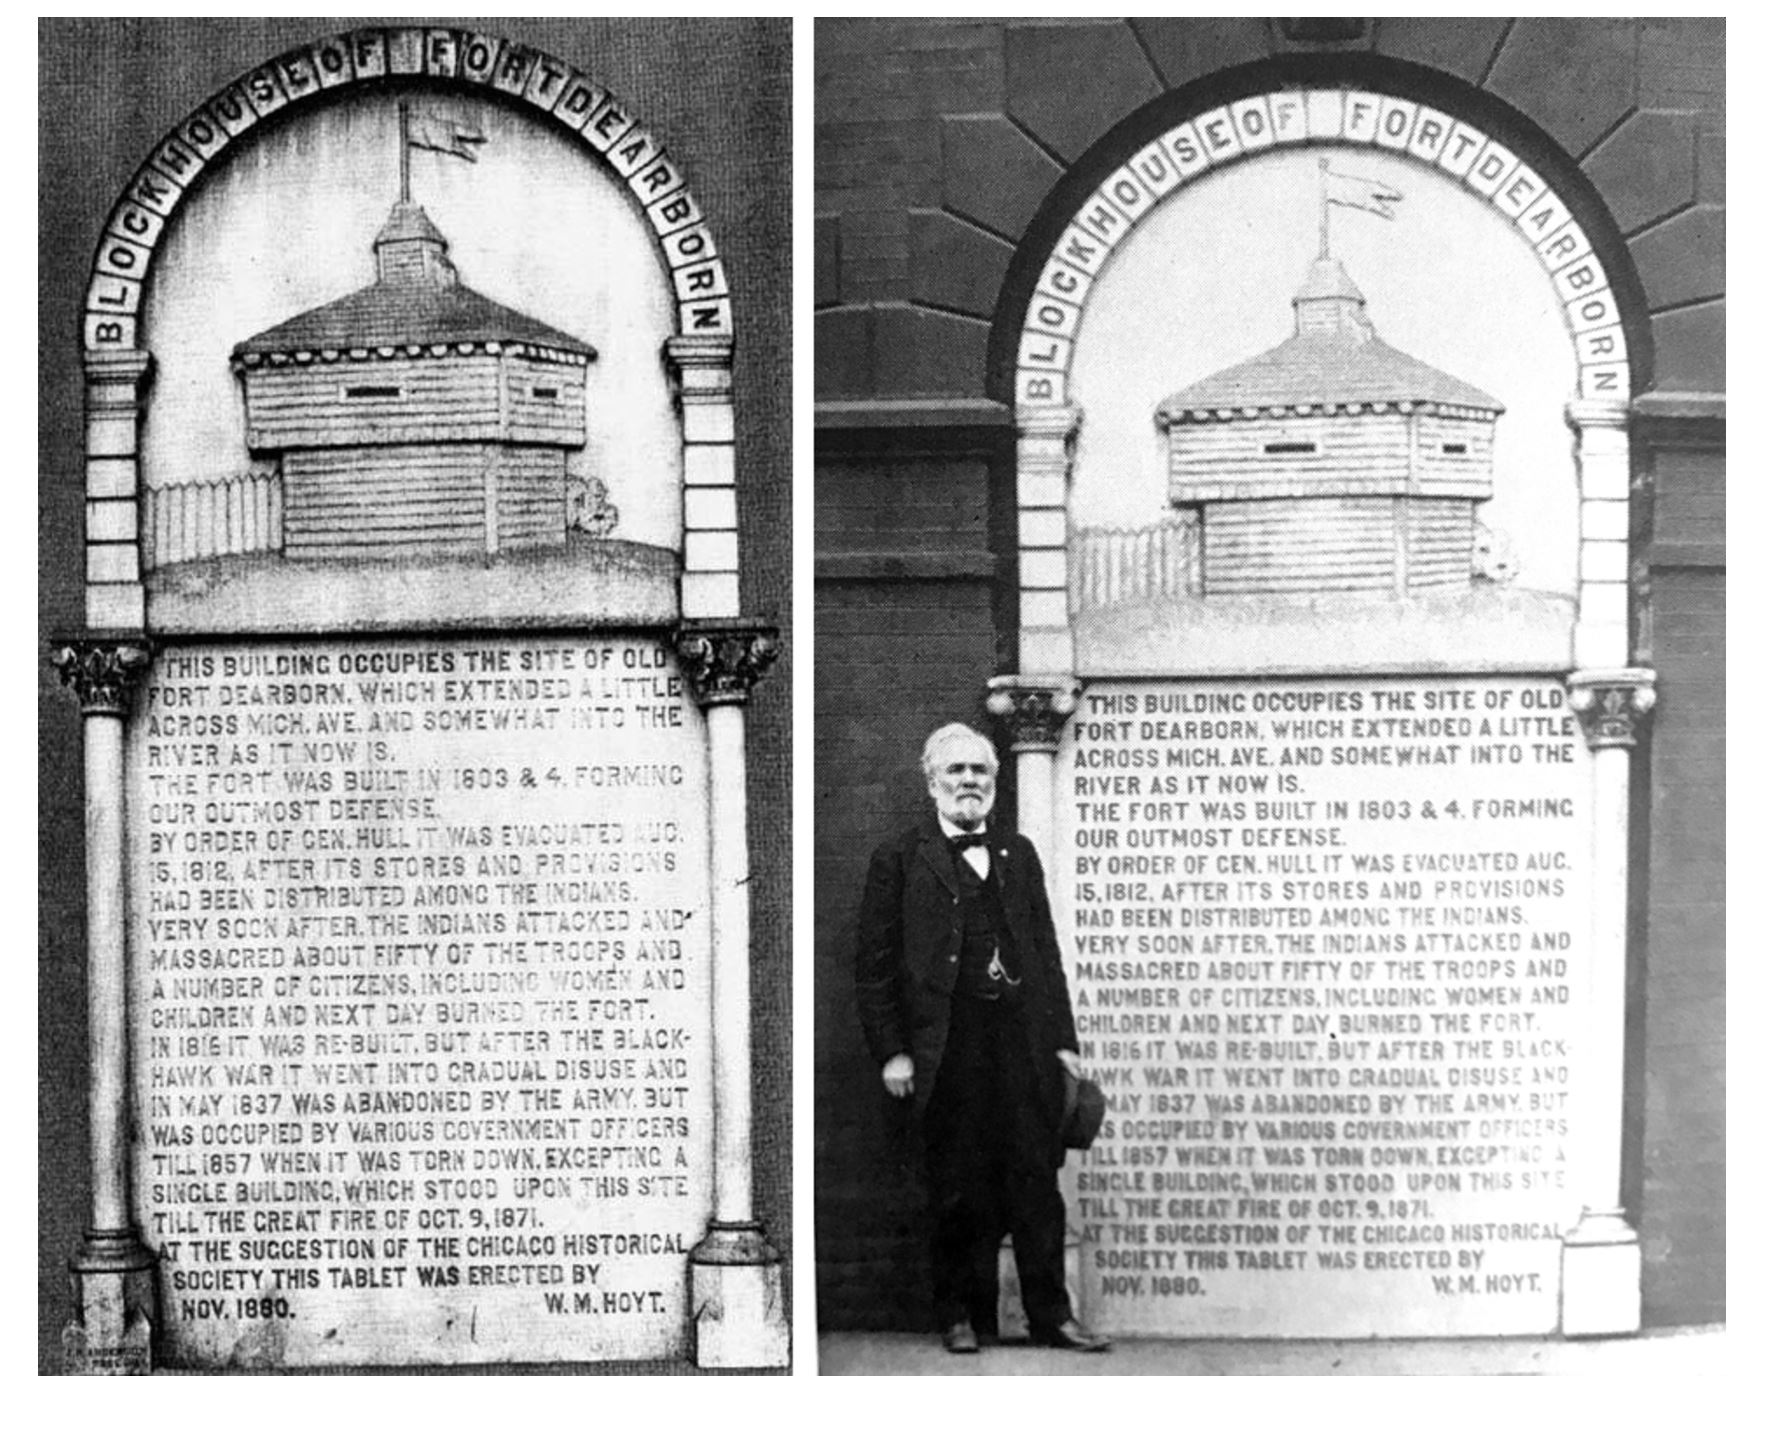 BLOCKHOUSE OF FORT DEARBORN
THIS BUILDING OCCUPIES THE SITE OF OLD
FORT DEARBORN, WHICH EXTENDED A LITTLE
ACROSS MICH. AVE. AND SOMEWHAT INTO THE
RIVER AS IT NOW IS.
THE FORT WAS BUILT IN 1803 & 4, FORMING
OUR OUTMOST DEFENSE.
BY ORDER OF GEN. HULL IT WAS EVACUATED AUG.
15, 1812, AFTER ITS STORES AND PROVISIONS
HAD BEEN DISTRIBUTED AMONG THE INDIANS.
VERY SOON AFTER, THE INDIANS ATTACKED AND
MASSACRED ABOUT FIFTY OF THE TROOPS AND
A NUMBER OF CITIZENS, INCLUDING WOMEN AND
CHILDREN AND NEXT DAY BURNED THE FORT.
IN 1816 IT WAS RE-BUILT, BUT AFTER THE BLACK-
HAWK WAR IT WENT INTO GRADUAL DISUSE AND
IN MAY 1837 WAS ABANDONED BY THE ARMY, BUT
WAS OCCUPIED BY VARIOUS GOVERNMENT OFFICERS
TILL 1857 WHEN IT WAS TORN DOWN, EXCEPTING A
SINGLE BUILDING, WHICH STOOD UPON THIS SITE
TILL THE GREAT FIRE OF OCT. 9, 1871.
AT THE SUGGESTION OF THE CHICAGO HISTORICAL
SOCIETY THIS TABLET WAS ERECTED BY
NOV. 1880. W. M. HOYT.
BLOCKHOUSE OF FORT DEARBORN
THIS BUILDING OCCUPIES THE SITE OF OLD
FORT DEARBORN, WHICH EXTENDED A LITTLE
ACROSS MICH. AVE. AND SOMEWHAT INTO THE
RIVER AS IT NOW IS.
THE FORT WAS BUILT IN 1803 & 4, FORMING
OUR OUTMOST DEFENSE.
BY ORDER OF GEN. HULL IT WAS EVACUATED AUG.
15, 1812, AFTER ITS STORES AND PROVISIONS
HAD BEEN DISTRIBUTED AMONG THE INDIANS.
VERY SOON AFTER, THE INDIANS ATTACKED AND
MASSACRED ABOUT FIFTY OF THE TROOPS AND
A NUMBER OF CITIZENS, INCLUDING WOMEN AND
CHILDREN AND NEXT DAY BURNED THE FORT.
IN 1816 IT WAS RE-BUILT, BUT AFTER THE BLACK-
HAWK WAR IT WENT INTO GRADUAL DISUSE AND
MAY 1837 WAS ABANDONED BY THE ARMY, BUT
OCCUPIED BY VARIOUS GOVERNMENT OFFICERS
TILL 1857 WHEN IT WAS TORN DOWN, EXCEPTING A
SINGLE BUILDING, WHICH STOOD UPON THIS SITE
TILL THE GREAT FIRE OF OCT. 9, 1871.
AT THE SUGGESTION OF THE CHICAGO HISTORICAL
SOCIETY THIS TABLET WAS ERECTED BY
NOV. 1880. W. M. HOYT.